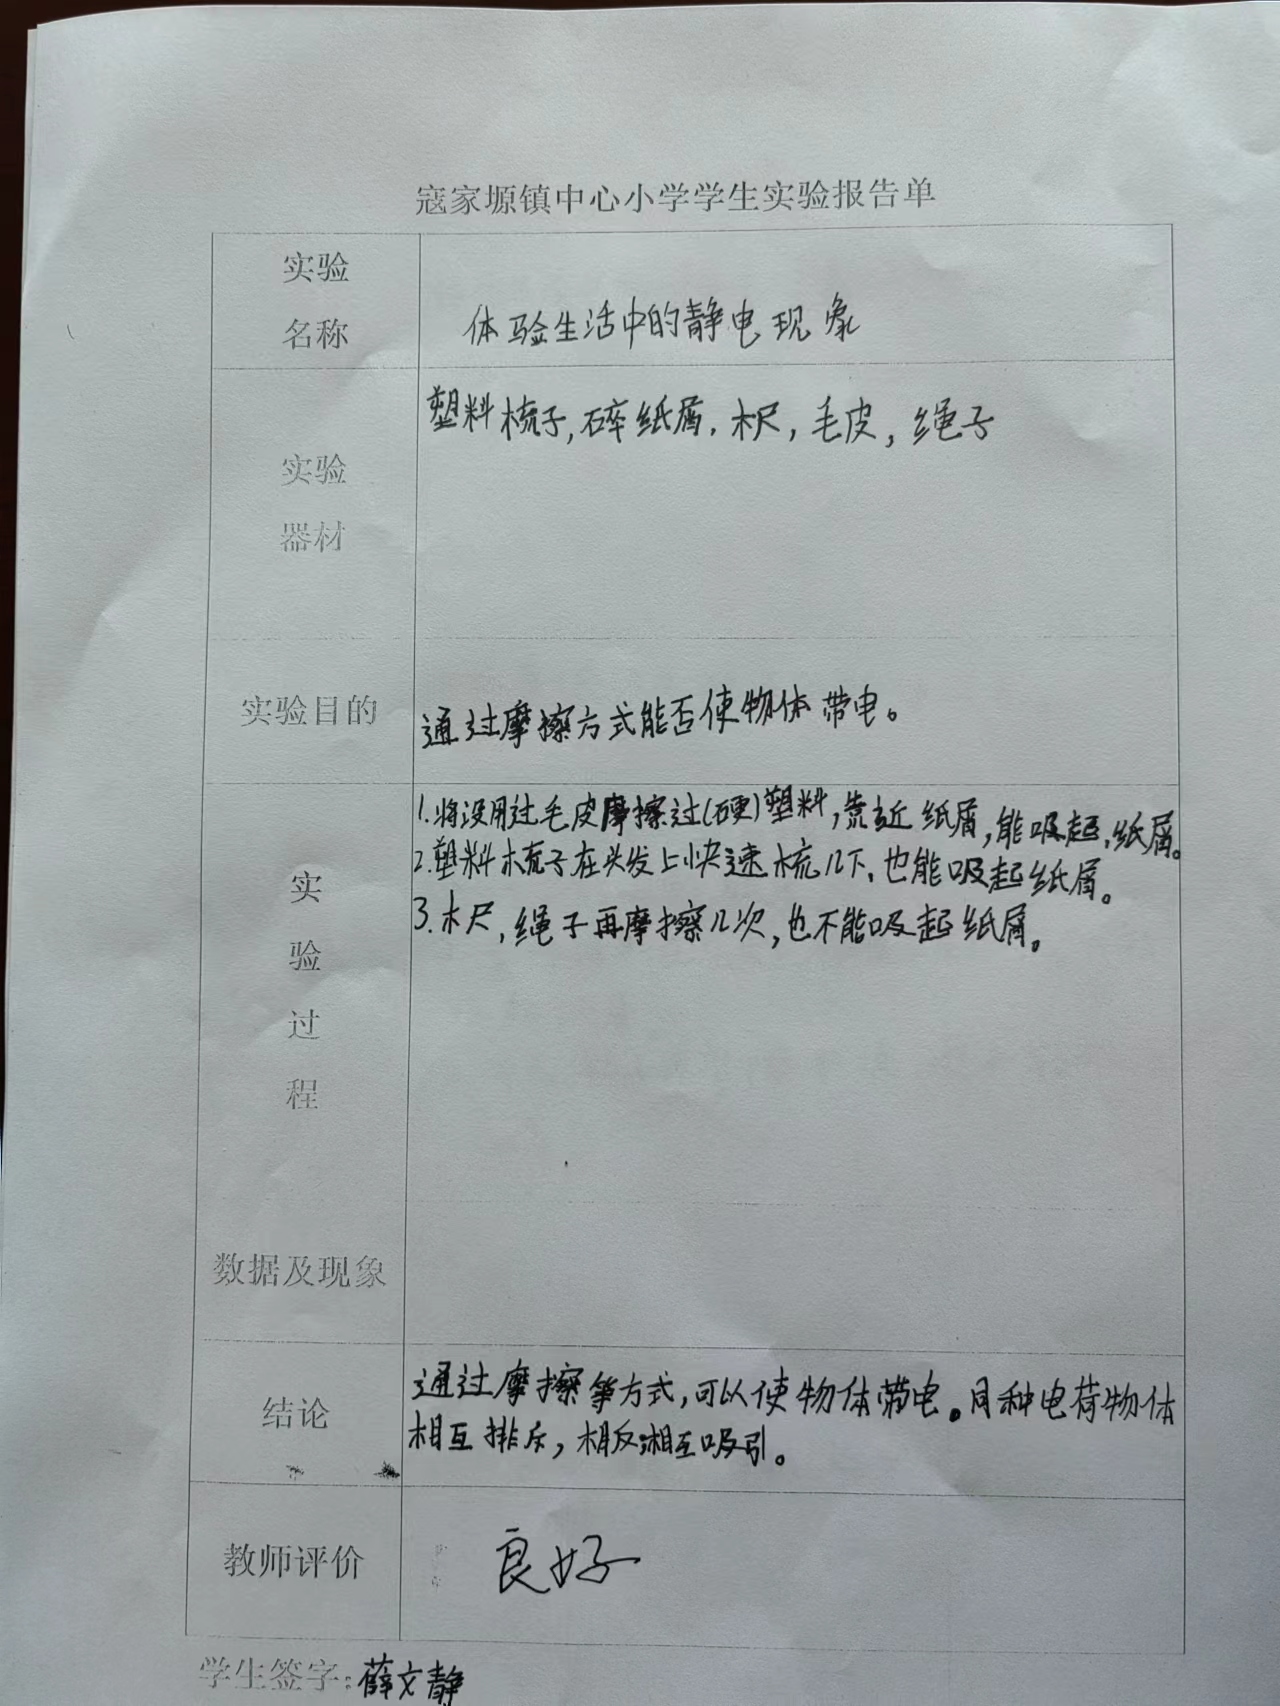 寇家塬镇中心小学学生实验报告单
实验
名称
体验生活中的静电现象
塑料梳子,碎纸屑,木尺,毛皮,绳子
实验
器材
实验目的
通过摩擦方式能否使物体带电。
1.将没用过毛皮摩擦过(硬)塑料,靠近纸屑,能吸起,纸屑。
2.塑料梳子在头发上快速梳几下,也能吸起纸屑。
3.木尺,绳子再摩擦几次,也不能吸起纸屑。
实
验
过
程
数据及现象
通过摩擦等方式,可以使物体带电。同种电荷物体
相互排斥,相反相互吸引。
结论
教师评价
良好
学生签字:薛文静